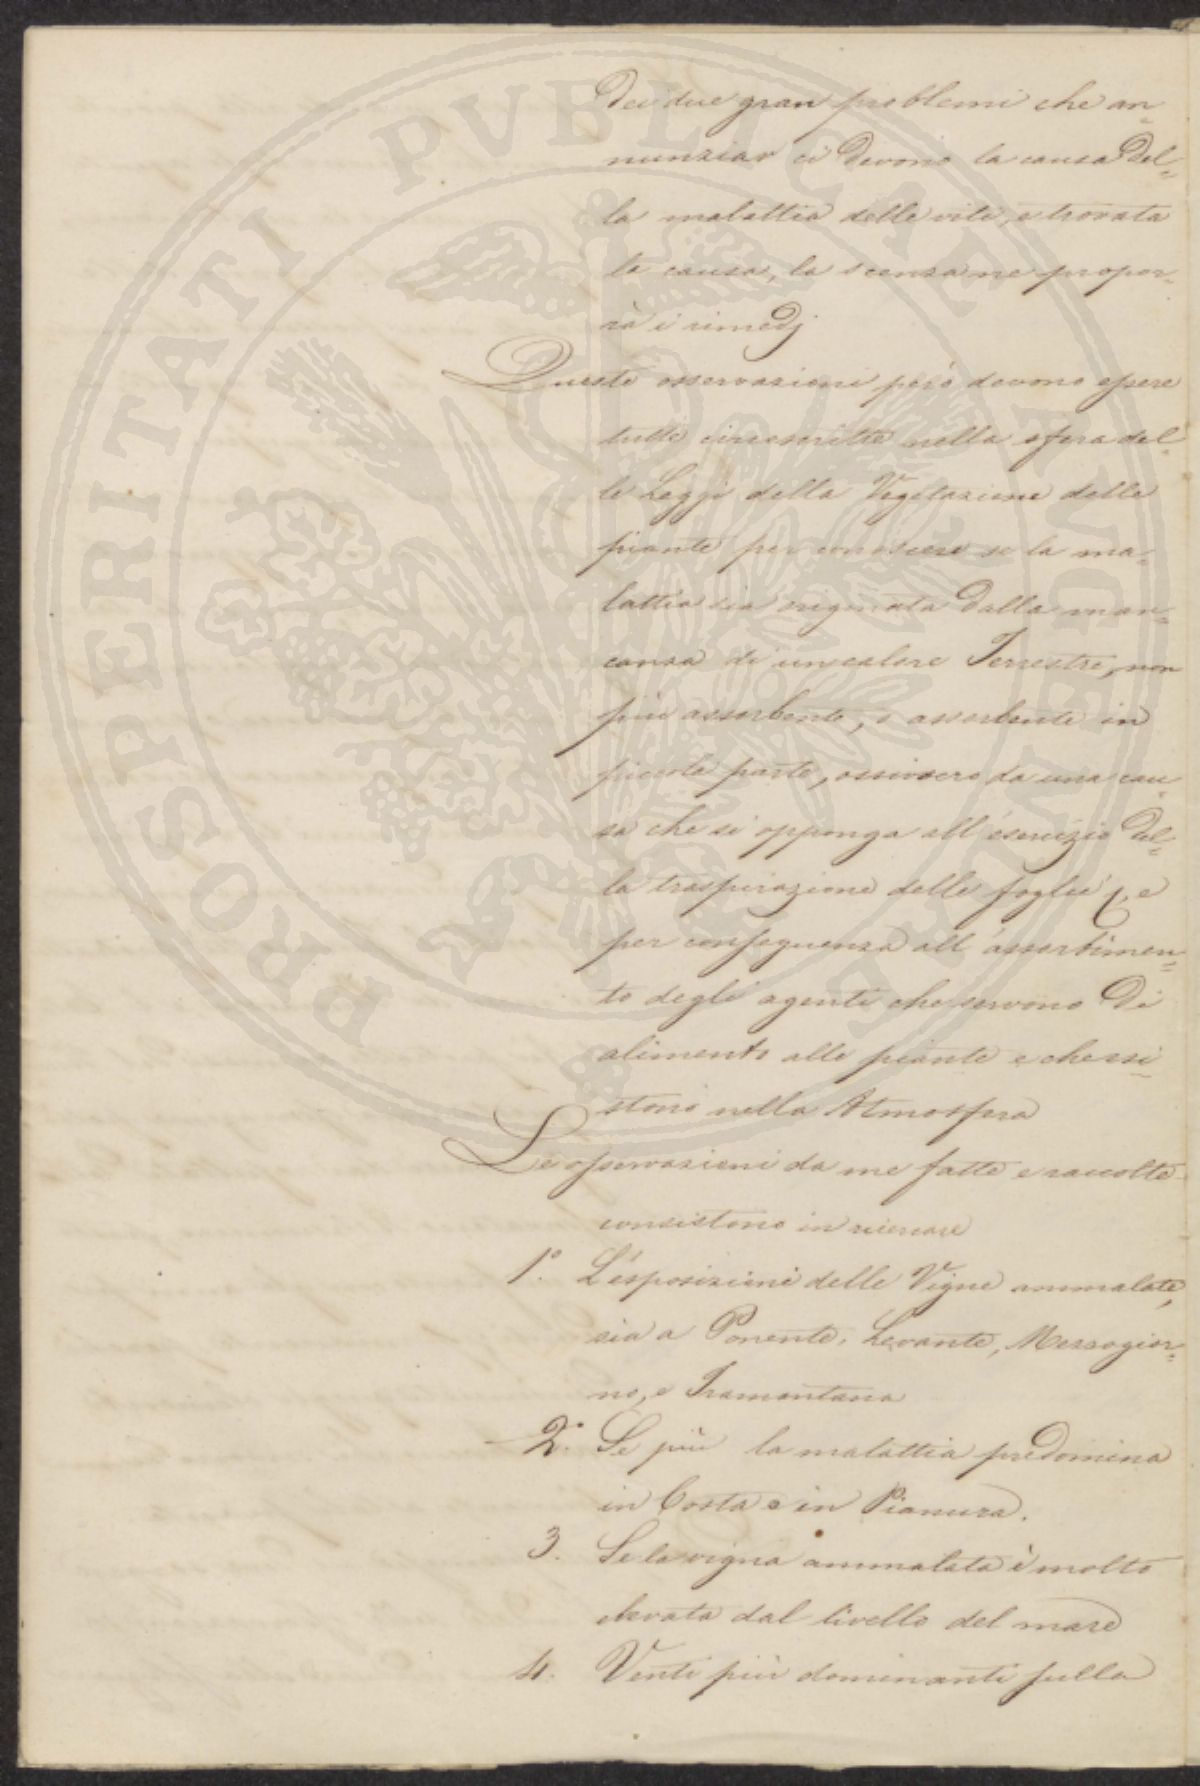 dei due gran problemi che an=
nunziar ci devono la causa del=
la malattia delle viti, e trovata
la causa, la scenza ne propor=
rà i rimedj
Queste osservazioni però devono essere
tutte circoscritte nella sfera del=
le Leggi della Vegetazione delle
piante per conoscere se la ma=
lattia sia originata dalla man=
canza di un calore Terrestre, non
più assorbente, o assorbente in
piccola parte, ossivvero da una cau=
sa che si opponga all'esercizio del=
la traspirazione delle foglie, e
per conseguenza all'assorbimen=
to degli agenti che servono di
alimento alle piante e che esi=
stono nella Atmosfera
Le osservazioni da me fatte e raccolte
consistono in ricercare
1.° L'esposizione delle Vigne ammalate,
sia a Ponente, Levante, Mezzogior=
no, e Tramontana
2.° Se più la malattia predomina
in Costa o in Pianura.
3. Se la vigna ammalata è molto
elevata dal livello del mare
4. Venti più dominanti sulla
PROSPERITATI PVBLICAE AVGENDAE